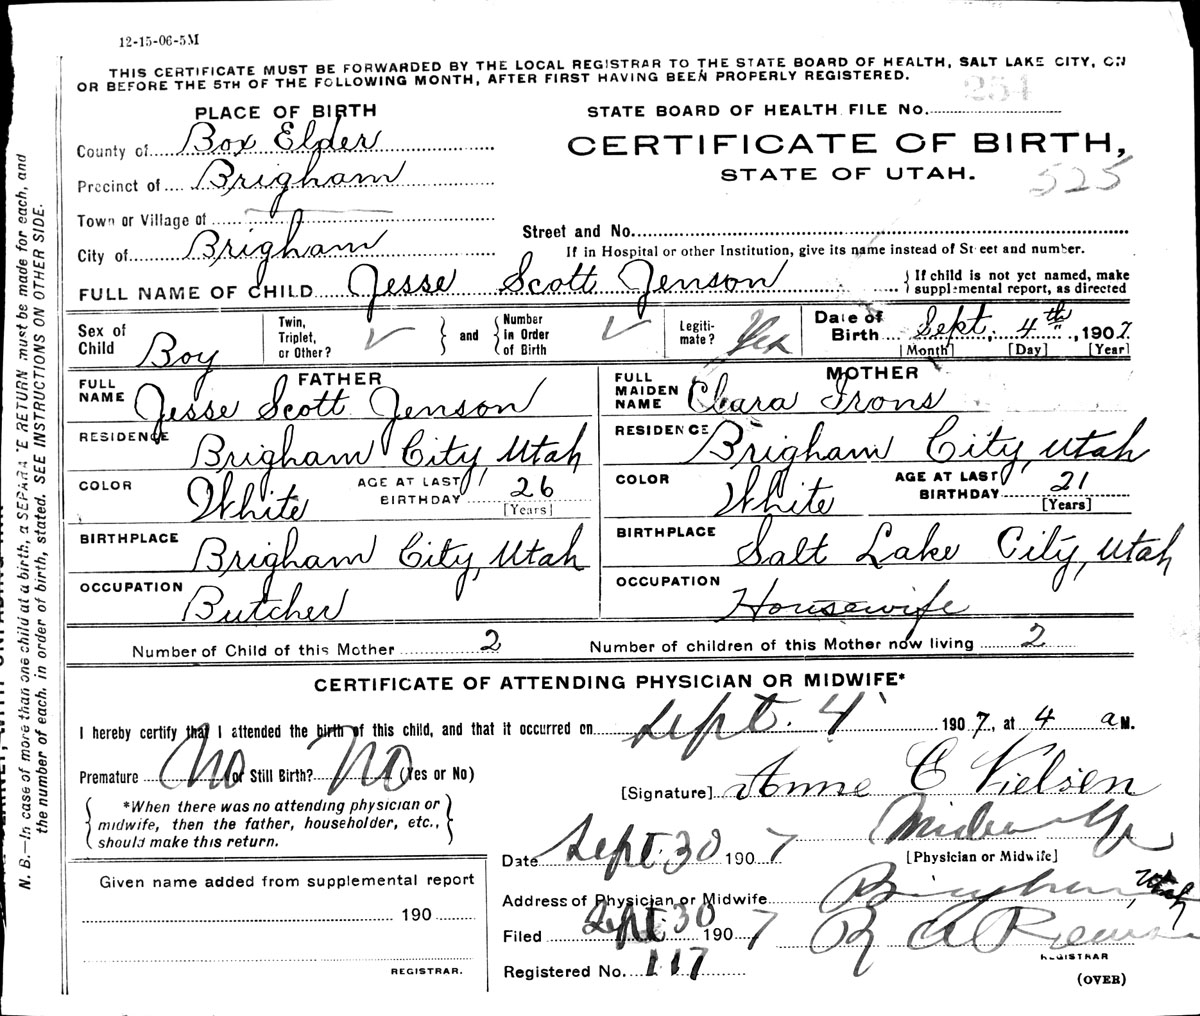 12-15-06-5M
THIS CERTIFICATE MUST BE FORWARDED BY THE LOCAL REGISTRAR TO THE STATE BOARD OF HEALTH, SALT LAKE CITY, ON
OR BEFORE THE 5TH OF THE FOLLOWING MONTH, AFTER FIRST HAVING BEEN PROPERLY REGISTERED.
PLACE OF BIRTH
STATE BOARD OF HEALTH FILE NO. 254
County of Box Elder
CERTIFICATE OF BIRTH,
Precinct of Brigham
STATE OF UTAH.
525
Town or Village of
Street and No.
City of Brigham
If in Hospital or other Institution, give its name instead of Street and number.
FULL NAME OF CHILD Jesse Scott Jenson
If child is not yet named, make
supplemental report, as directed
Sex of Child Boy
Twin, Triplet, or Other?
and
Number in Order of Birth
Legiti-mate? Yes
Date of Birth Sept. 4th, 1907
[Month] [Day] [Year]
FATHER
FULL NAME Jesse Scott Jenson
MOTHER
FULL MAIDEN NAME Clara Irons
RESIDENCE Brigham City, Utah
RESIDENCE Brigham City, Utah
COLOR White
AGE AT LAST BIRTHDAY 26 [Years]
COLOR White
AGE AT LAST BIRTHDAY 21 [Years]
BIRTHPLACE Brigham City, Utah
BIRTHPLACE Salt Lake City, Utah
OCCUPATION Butcher
OCCUPATION Housewife
Number of Child of this Mother 2
Number of children of this Mother now living 2
CERTIFICATE OF ATTENDING PHYSICIAN OR MIDWIFE*
I hereby certify that I attended the birth of this child, and that it occurred on Sept. 4 1907, at 4 a M.
Premature No or Still Birth? No (Yes or No)
[Signature] Anne C Nielsen
*When there was no attending physician or
midwife, then the father, householder, etc.,
should make this return.
Midwife
[Physician or Midwife]
Date Sept. 30 1907
Given name added from supplemental report
190
REGISTRAR.
Address of Physician or Midwife Brigham, Utah
Filed Sept. 30 1907
R A
REGISTRAR
Registered No. 117
(OVER)
N. B.—In case of more than one child at a birth, a SEPARATE RETURN must be made for each, and
the number of each, in order of birth, stated. SEE INSTRUCTIONS ON OTHER SIDE.